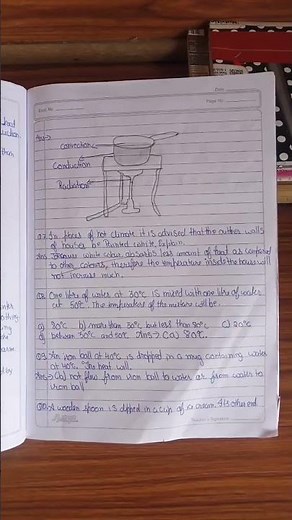 Date
Page No.
Ans→
Convection
Conduction
Radiation
Q2 In places of hot climate it is advised that the outher walls
of houses be Painted white. Explain.
Ans Because white colour absorbs less amount of heat as compared
to other colours, therefore the temperature inside the house will
not increase much.
Q2 One litre of water at 30°C is mixed with one litre of water
at 50°C. The temperature of the mixture will be.
a) 80°C b) more than 30°C but less than 80°C c) 20°C
d) between 30°C and 50°C Ans→
Q3 An iron ball at 40°C is dropped in a mug containing water
at 40°C. The heat will.
Ans→ (b) not flow from iron ball to water or from water to
iron ball.
A wooden spoon is dipped in a cup of ice cream. Its other end